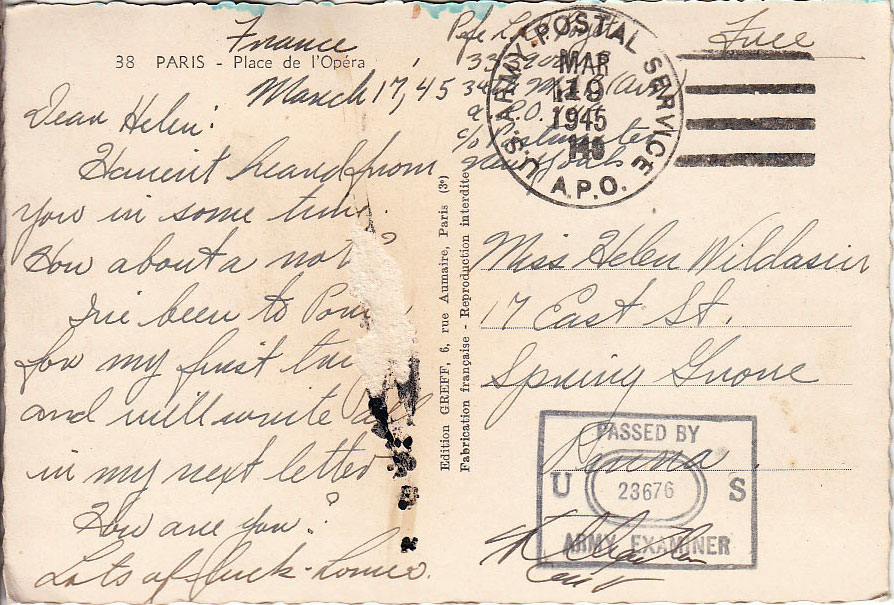 38 PARIS - Place de l'Opéra
France
March 17, 45
Dear Helen:
Haven't heard from
you in some time.
How about a not
I've been to
for my first
and will write
in my next letter
How are you?
Lots of luck - Romeo.
Edition GREFF, 6, rue Aumaire, Paris (3e)
Fabrication française - Reproduction interdite
Pfc
Free
U.S. ARMY POSTAL SERVICE
MAR
19
1945
A.P.O.
New York
Miss Helen Wildasin
17 East St.
Spring Grove
Penna.
PASSED BY
U 23676 S
ARMY EXAMINER